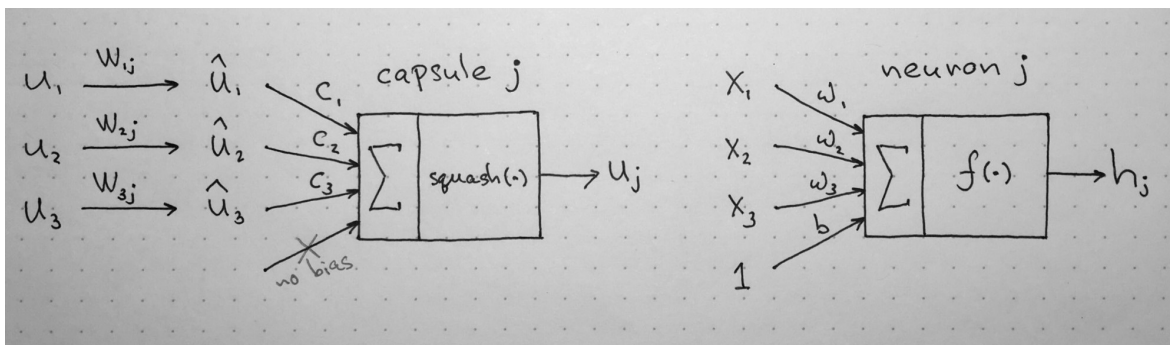 capsule j
u₁ W₁ⱼ û₁ C₁
u₂ W₂ⱼ û₂ C₂
u₃ W₃ⱼ û₃ C₃
Σ squash(·) uⱼ
no bias
neuron j
X₁ ω₁
X₂ ω₂
X₃ ω₃
1 b
Σ f(·) hⱼ